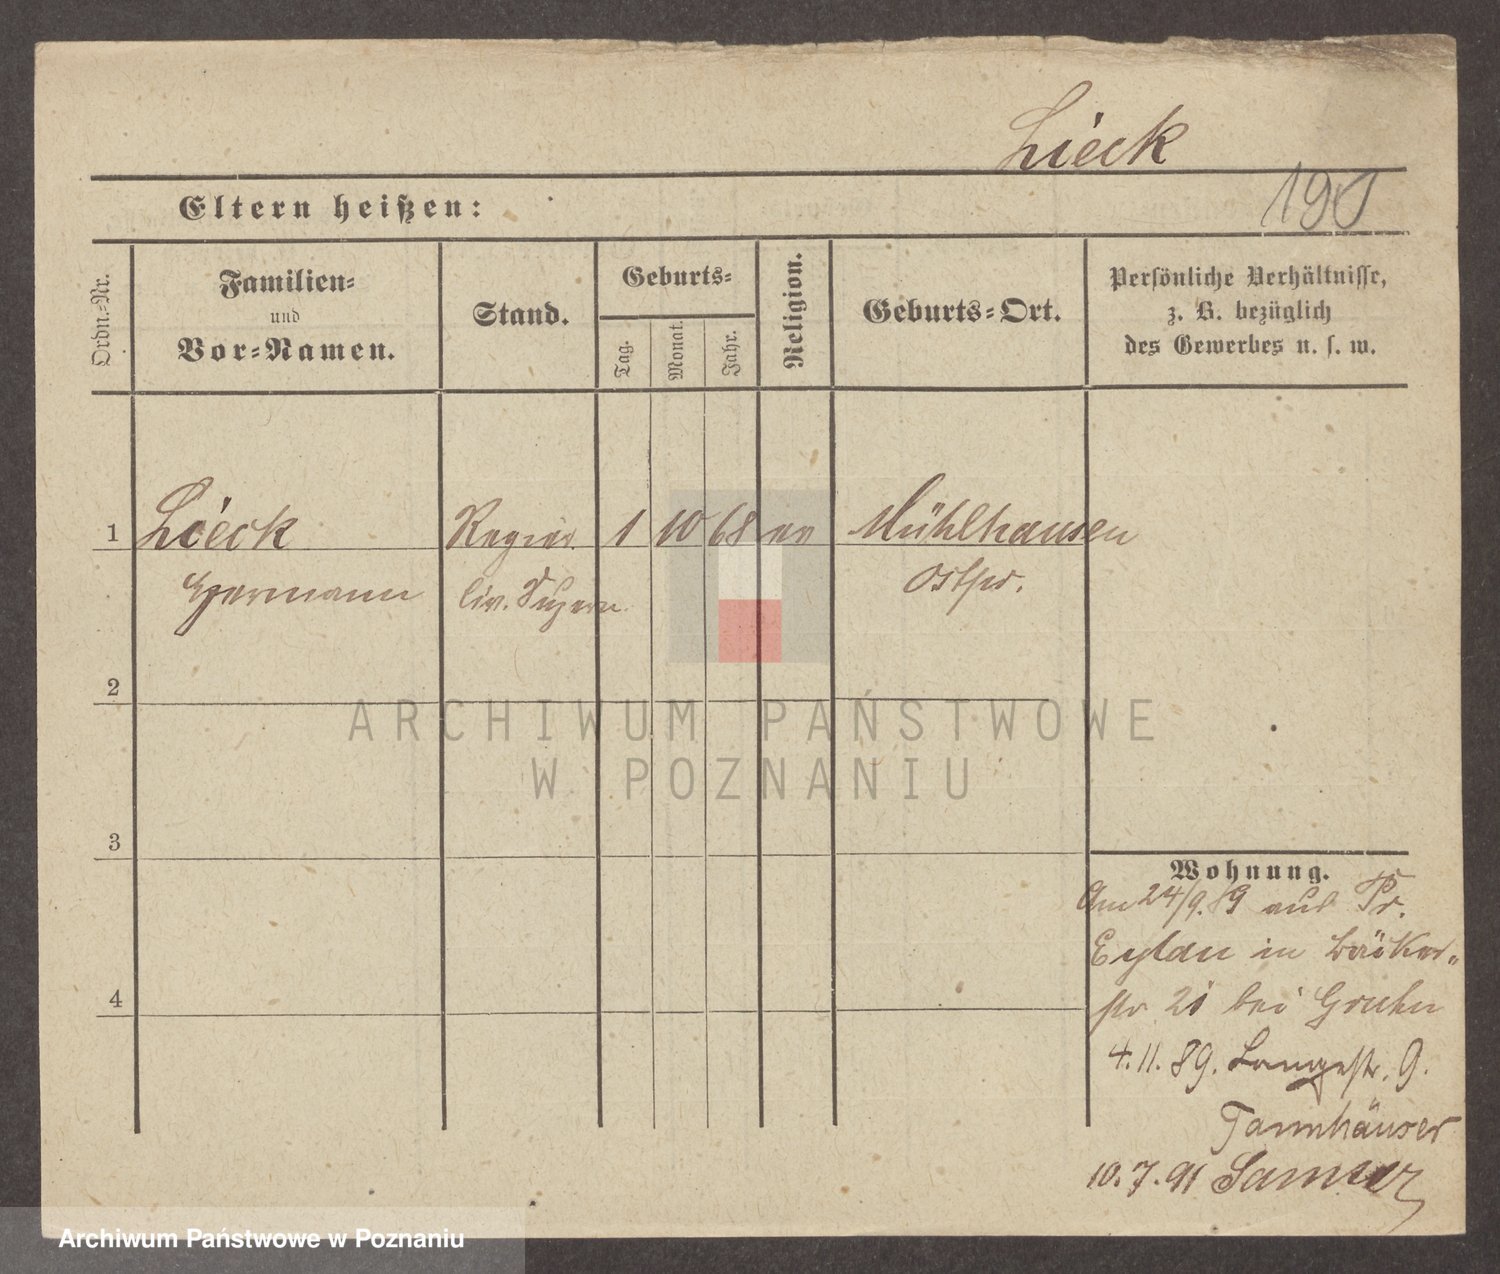 Lieck
190
Eltern heißen:
Ordn.-Nr.
Familien-
und
Vor-Namen.
Stand.
Geburts-
Tag.
Monat.
Jahr.
Religion.
Geburts-Ort.
Persönliche Verhältnisse,
z. B. bezüglich
des Gewerbes u. s. w.
1 Lieck 1 10 68 ev Mühlhausen
Hermann Ostpr.
2
3
4
ARCHIWUM PAŃSTWOWE
W POZNANIU
Wohnung.
Am 24/9. 89 aus Pr.
Eylau in Bäcker-
str 21 bei Gruhn
4.11.89. Langestr. 9.
Tannhäuser
10.7.91
Archiwum Państwowe w Poznaniu